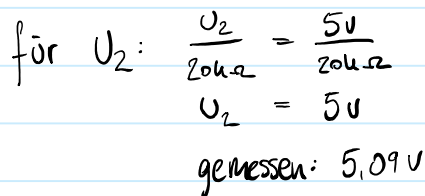 für U₂: U₂/20kΩ = 5V/20kΩ
U₂ = 5V
gemessen: 5,09 V